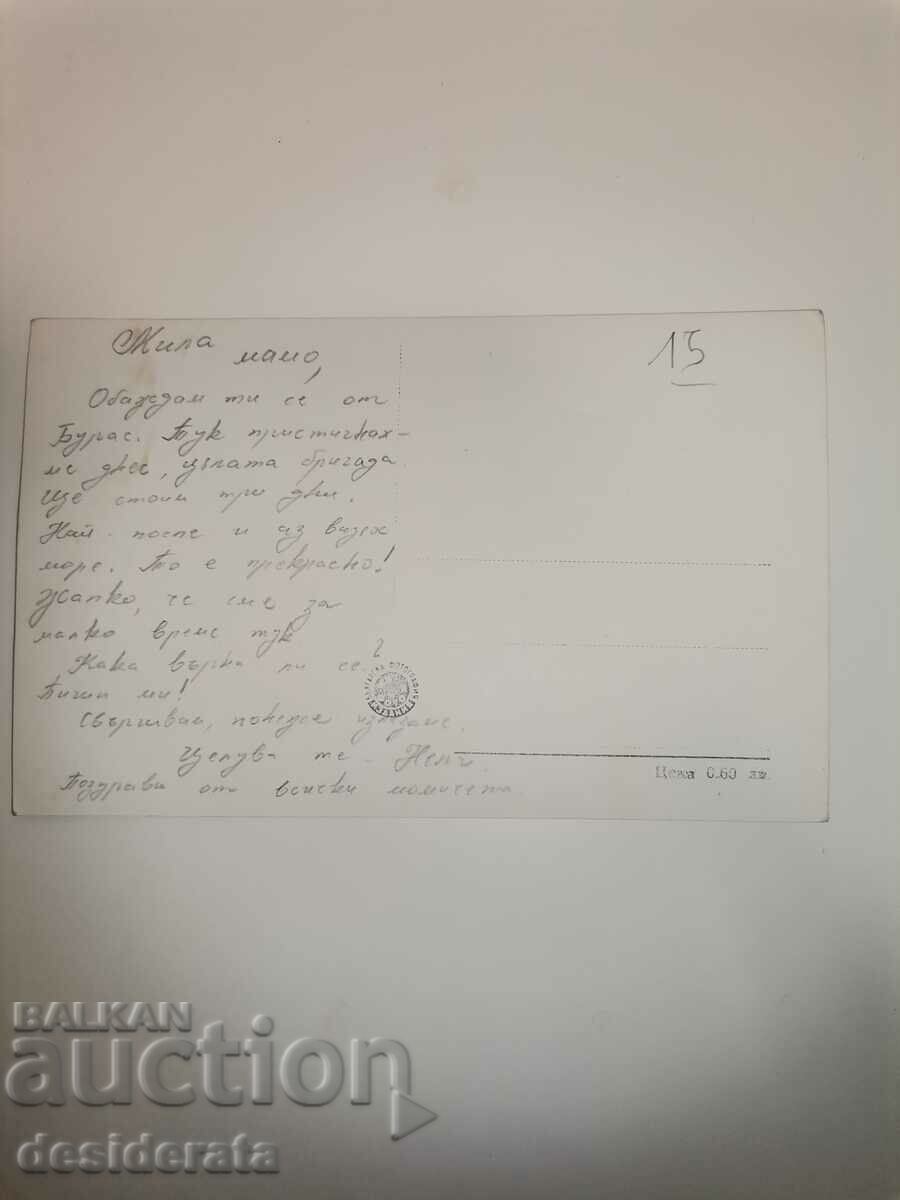 Мила
мамо,
15
Обаждам ти се от
Бургас. Тук пристигнах-
ме днес, цялата бригада.
Ще стоим три дни.
Най-после и аз видях
море. То е прекрасно!
Жалко, че сме за
малко време тук
Кака върна ли се?
Пиши ми!
Свършвам, понеже излизаме.
Целува те - Нели.
Поздрави от всички момичета.
Цена 0.60 лв.
BALKAN
auction
desiderata